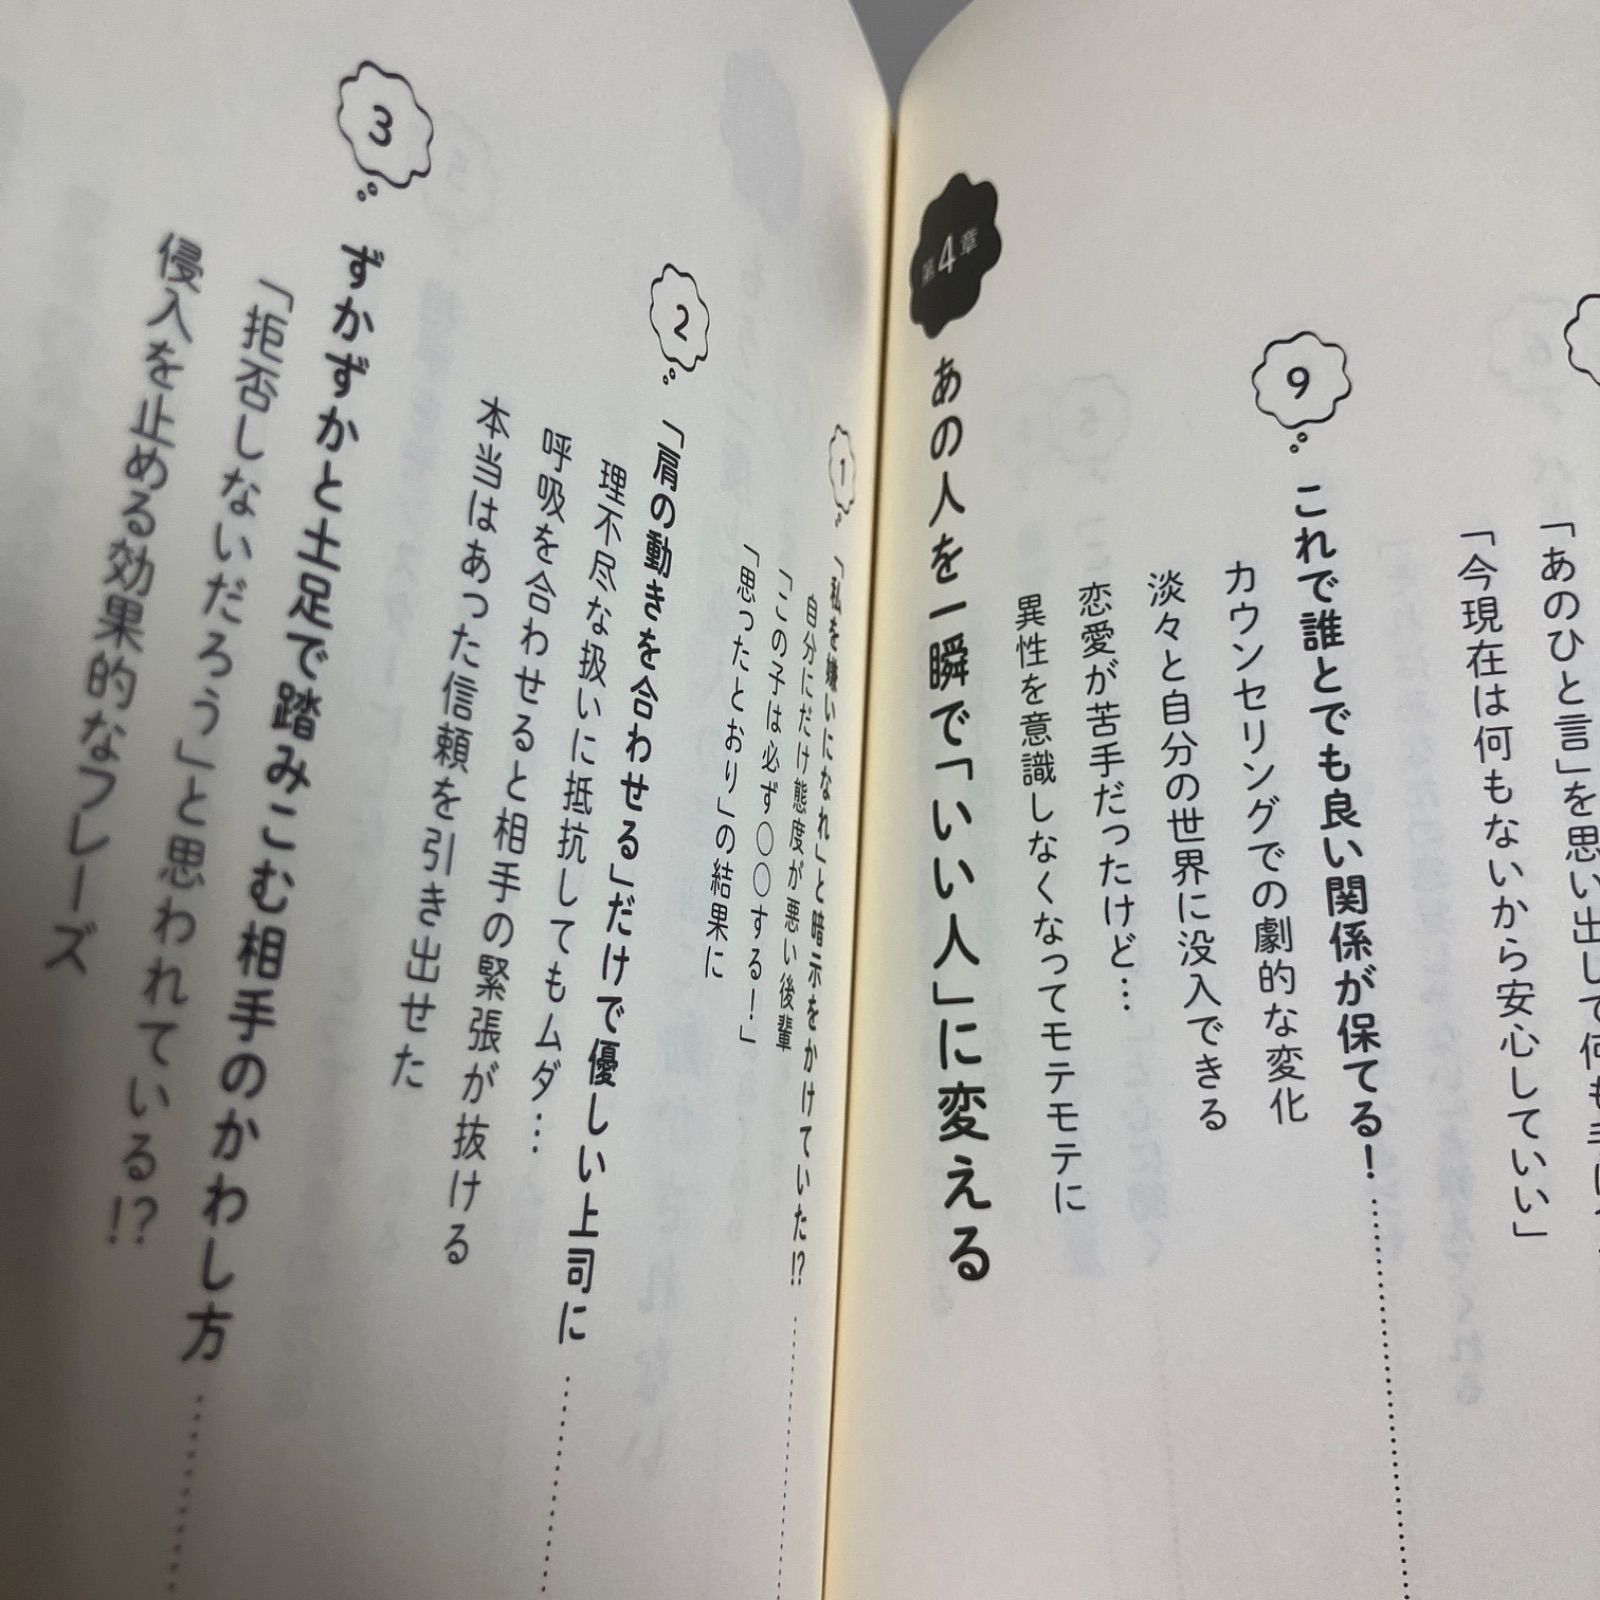 「あのひと言」を思い出して何も手に
「今現在は何もないから安心していい」
9
これで誰とでも良い関係が保てる!
カウンセリングでの劇的な変化
淡々と自分の世界に没入できる
恋愛が苦手だったけど…
異性を意識しなくなってモテモテに
第4章
あの人を一瞬で「いい人」に変える
1
「私を嫌いになれ」と暗示をかけていた!?
自分にだけ態度が悪い後輩
「この子は必ず○○する!」
「思ったとおり」の結果に
2
「肩の動きを合わせる」だけで優しい上司に
理不尽な扱いに抵抗してもムダ…
呼吸を合わせると相手の緊張が抜ける
本当はあった信頼を引き出せた
3
ずかずかと土足で踏みこむ相手のかわし方
「拒否しないだろう」と思われている!?
侵入を止める効果的なフレーズ